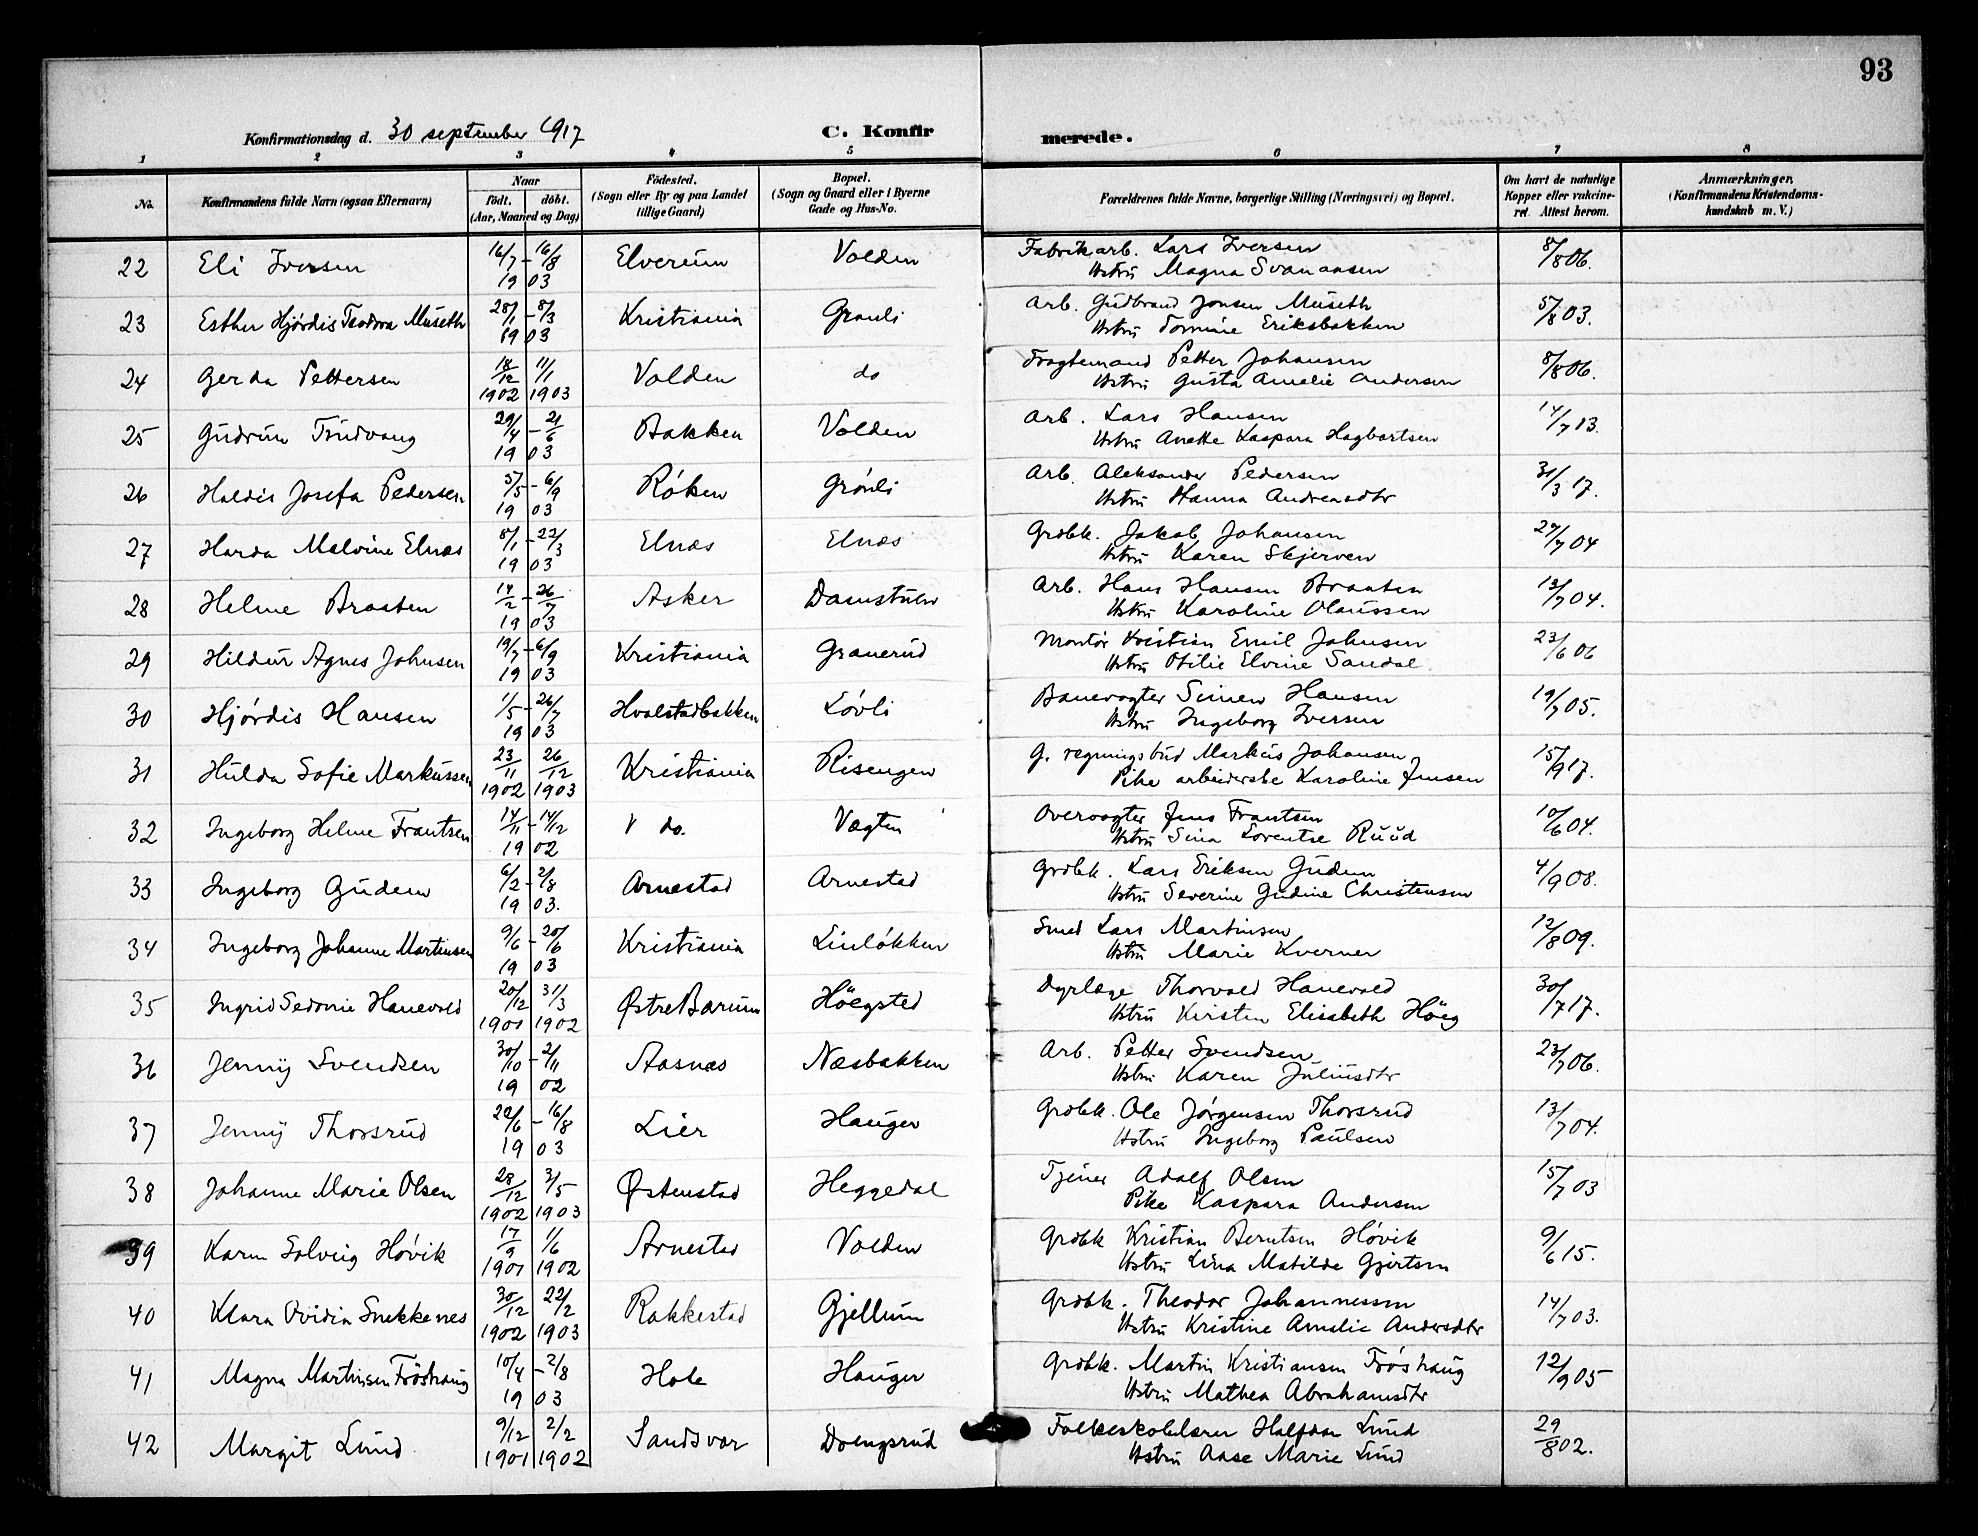 93
Konfirmationsdag d. 30 september 1917 C. Konfir merede.
1 2 3 4 5 6 7 8
No. Konfirmandens fulde Navn (ogsaa Efternavn) Naar født. døbt. (Aar, Maaned og Dag) Fødested. (Sogn eller By og paa Landet tillige Gaard) Bopæl. (Sogn og Gaard eller i Byerne Gade og Hus-No. Forældrenes fulde Navne, borgerlige Stilling (Næringsvei) og Bopæl. Om havt de naturlige Kopper eller vakcineret. Attest herom. Anmærkninger. (Konfirmandens Kristendomskundskab m. V.)
22 Eli Iversen 16/7 - 16/8 1903 Elverum Volden Fabrikarb. Lars Iversen
Hstru Magna Svanaasen 8/8 06.
23 Esther Hjördis Teodora Museth 28/1 - 8/3 1903 Kristiania Grönli Arb. Gudbrand Jonsen Museth
Hstru Tomine Eriksbakken 5/8 03.
24 Gerda Pettersen 18/12 1902 11/1 1903 Volden do Fragtemand Petter Johansen
Hstru Gusta Amelie Andersen 8/8 06.
25 Gudrun Tindvang 29/4 - 21/6 1903 Bakken Volden Arb. Lars Hansen
Hstru Anette Kaspara Hagbartsen 14/7 13.
26 Haldis Josefa Pedersen 5/5 - 6/9 1903 Röken Grönli Arb. Aleksander Pedersen
Hstru Hanna Andreasdtr 31/3 17.
27 Harda Malvine Elnæs 8/1 - 22/3 1903 Elnæs Elnæs Grdbk. Jakob Johansen
Hstru Karen Skjerven 29/7 04
28 Helene Braaten 14/2 - 26/7 1903 Asker Damstuen Arb. Hans Hansen Braaten
Hstru Karoline Olaussen 13/7 04.
29 Hildur Agnes Johnsen 19/7 - 6/9 1903 Kristiania Granerud Montör Kristian Emil Johnsen
Hstru Otilie Elvine Sandal 23/6 06
30 Hjördis Hansen 1/5 - 26/7 1903 Hvalstadbakken Lövli Banevogter Simen Hansen
Hstru Ingeborg Iversen 19/7 05.
31 Hulda Sofie Markussen 23/11 1902 26/12 1903 Kristiania Risengen G. regningsbud Markus Johansen
Pike arbeiderske Karoline Jensen 15/9 17.
32 Ingeborg Helene Frantsen 14/11 - 14/12 1902 V do. Vegten Overvogter Jens Frantsen
Hstru Sina Lorentse Ruud 10/6 04.
33 Ingeborg Gudem 6/2 - 2/8 1903. Arnestad Arnestad Grdbk. Lars Eriksen Gudem
Hstru Severine Gudine Christensen 4/9 08.
34 Ingeborg Johanne Martinsen 9/6 - 20/6 1903 Kristiania Linlökken Smed Lars Martinsen
Hstru Marie Kverner 12/8 09.
35 Ingrid Sedonie Hanevold 20/12 1901 31/3 1902 Østre Bærum Höegsted Dyrlæge Thorvald Hanevold
Hstru Kirsten Elisabeth Höeg 30/7 17.
36 Jenny Svendsen 30/10 - 2/11 1902 Aasnæs Næsbakken Arb. Petter Svendsen
Hstru Karen Juliusdtr 23/7 06.
37 Jenny Thorsrud 22/6 - 16/8 1903 Lier Hauger Grdbk. Ole Jørgensen Thorsrud
Hstru Ingeborg Paulsen 13/7 04.
38 Johanne Marie Olsen 28/12 1902 3/5 1903 Østenstad Heggedal Tjener Adolf Olsen
Pike Kaspara Andersen 15/7 03
39 Karen Solveig Hövik 17/9 1901 1/6 1902 Arnestad Volden Grdbk Kristian Berntsen Høvik
Hstru Lina Matilde Gjertsen 9/6 15.
40 Klara Ovidia Snekkenes 30/12 1902 22/2 1903 Rakkestad Gjellum Grdbk. Theodor Johannessen
Hstru Kristine Amalie Andersdtr 14/7 03.
41 Magna Martinsen Fröshaug 10/4 - 2/8 1903 Hole Hauger Grdbk. Martin Kristiansen Fröshaug
Hstru Mathea Abrahamsdtr 12/9 05
42 Margit Lund 9/12 1901 2/2 1902 Sandsvær Doengsrud Folkeskolelærer Halfdan Lund
Hstru Aase Marie Lund 29/8 02.